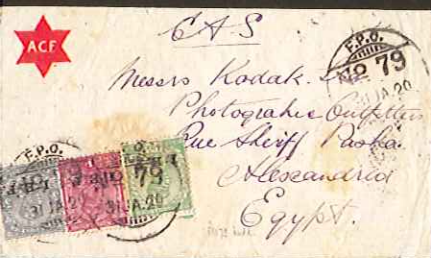 E A S
ACF
F.P.O.
No 79
31 JA.20
Messrs Kodak
Photograhic Outfitters
Rue Sheriff Pasha
Alexandria
Egypt.
F.P.O.
31 JA.20
No 79
31 JA.20